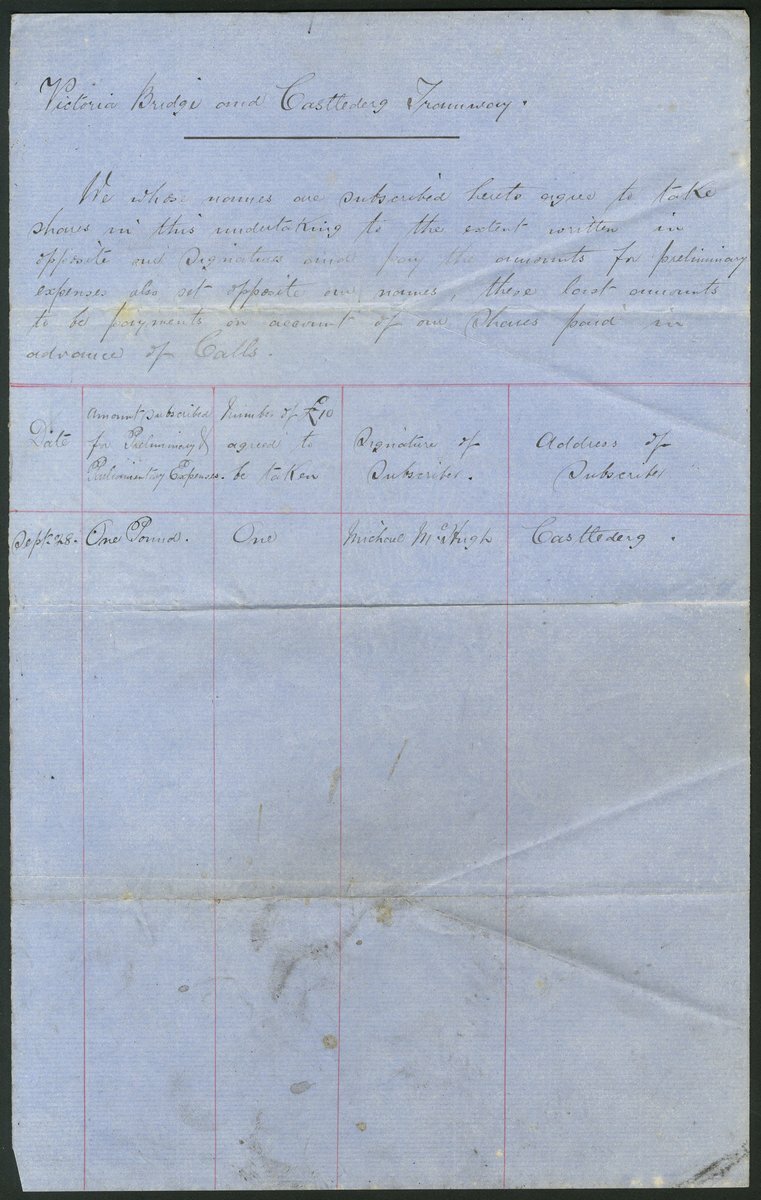 Victoria Bridge and Castlederg Tramway.
We whose names are subscribed hereto agree to take
shares in this undertaking to the extent written in
opposite our Signatures and pay the amounts for preliminary
expenses also set opposite our names, these last amounts
to be payments on account of our Shares paid in
advance of Calls.
Date
Amount subscribed
for Preliminary &
Parliamentary Expenses.
Number of £10
agreed to
be taken
Signature of
Subscriber.
Address of
Subscriber
Sept. 28. One Pound. One Michael McHugh Castlederg.